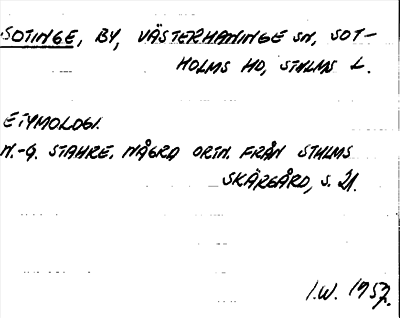 SOTINGE, BY, VÄSTERHANINGE SN, SOT-
HOLMS HD, STHLMS L.
ETYMOLOGI.
N.-G. STAHRE. NÅGRA ORTN. FRÅN STHLMS
SKÄRGÅRD, S. 21.
I.W. 1957.